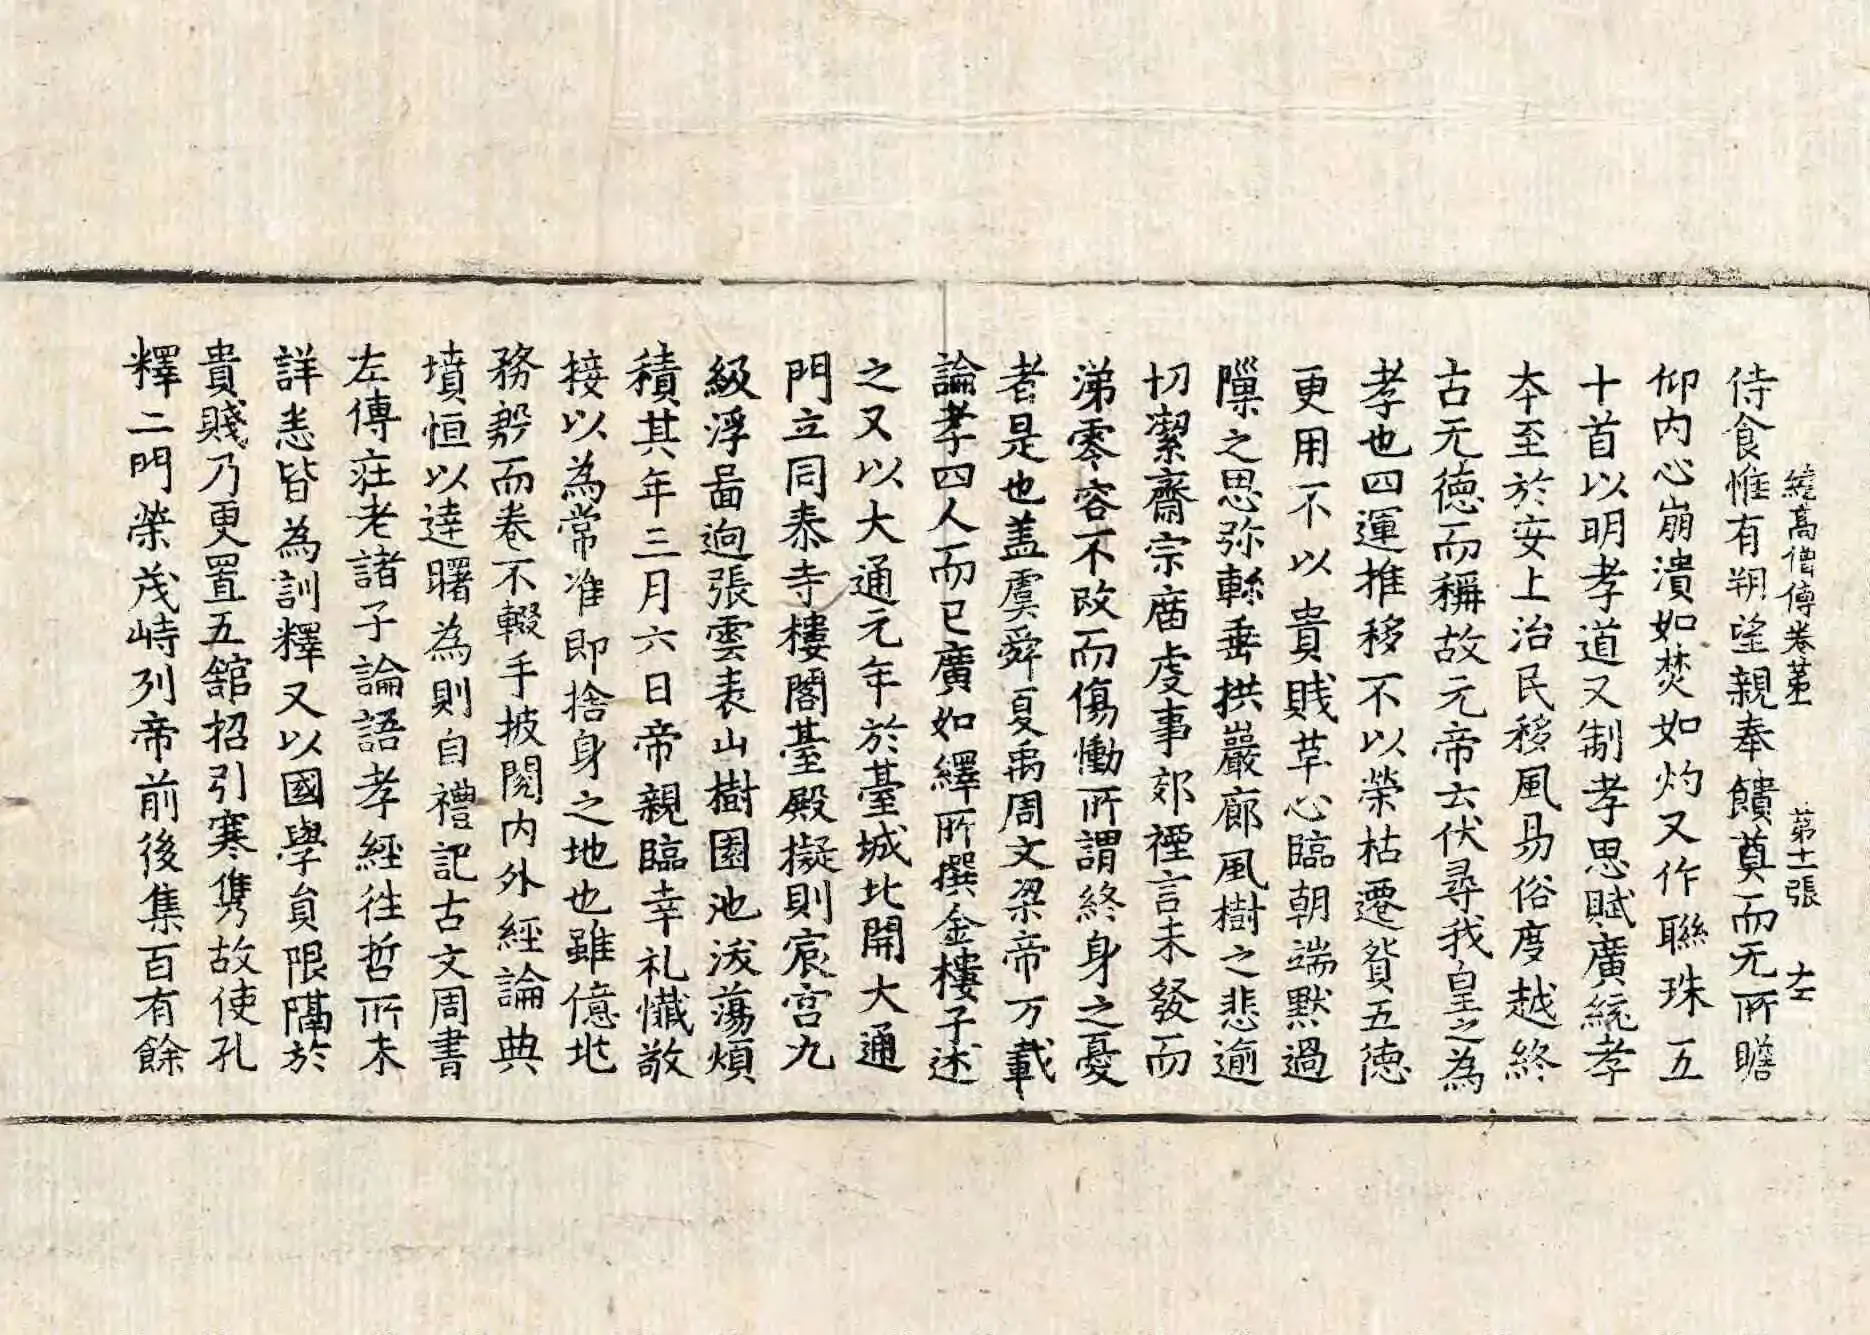 續高僧傳卷苐一 苐十一張 十六
侍食惟有朔望親奉饋奠而无所瞻
仰内心崩潰如焚如灼又作聯珠五
十首以明孝道又制孝思賦廣統孝
夲至於安上治民移風易俗度越終
古无德而稱故元帝云伏尋我皇之為
孝也四運推移不以榮枯遷貿五徳
更用不以貴賎草心臨朝端默過
隟之思弥軫垂拱巖廊風樹之悲逾
切潔齋宗庿虔事郊禋言未發而
涕零容不改而傷慟所謂終身之憂
者是也盖虞舜夏禹周文梁帝万載
論孝四人而已廣如繹所撰金樓子述
之又以大通元年於臺城北開大通
門立同泰寺樓閣臺殿擬則宸宮九
級浮啚逈張雲表山樹園池沃蕩煩
積其年三月六日帝親臨幸礼懴敬
接以為常准即捨身之地也雖億地
務殷而卷不輟手披閱内外經論典
墳恒以達曙為則自禮記古文周書
左傳庄老諸子論語孝經徃哲所未
詳悉皆為訓釋又以國學貟限隔於
貴賤乃更置五舘招引寒儁故使孔
釋二門榮茂峙列帝前後集百有餘